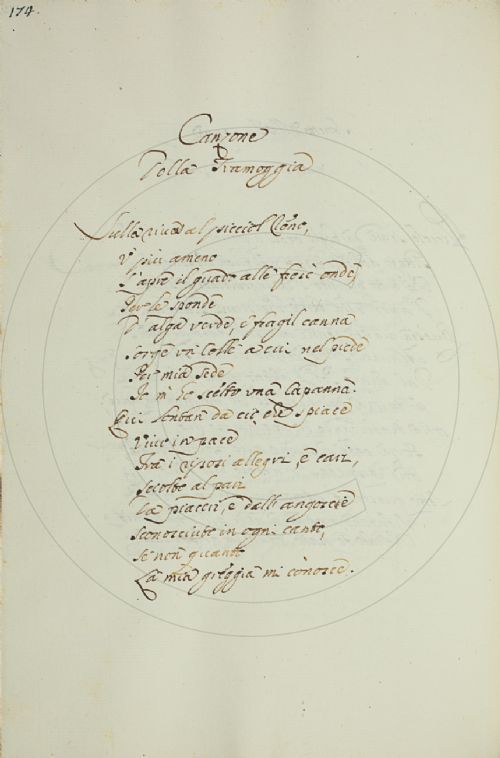 174.
Canzone
Della Tramoggia
Sulla riva al picciol Clone,
V' più ameno
S'apre il guado alle fresc' onde,
Per le sponde
D' alga verde, e fragil canna
Sorge un Colle a cui nel piede
Per mia sede
Io m' ho scelto una Capanna.
Qui lontan da ciò, che spiace
Vivo in pace
Trà i riposi allegri, e cari,
Sciolto al pari
Da piaceri, e dall' angoscie
Sconosciuto in ogni canto,
Se non quanto
La mia greggia mi conosce.